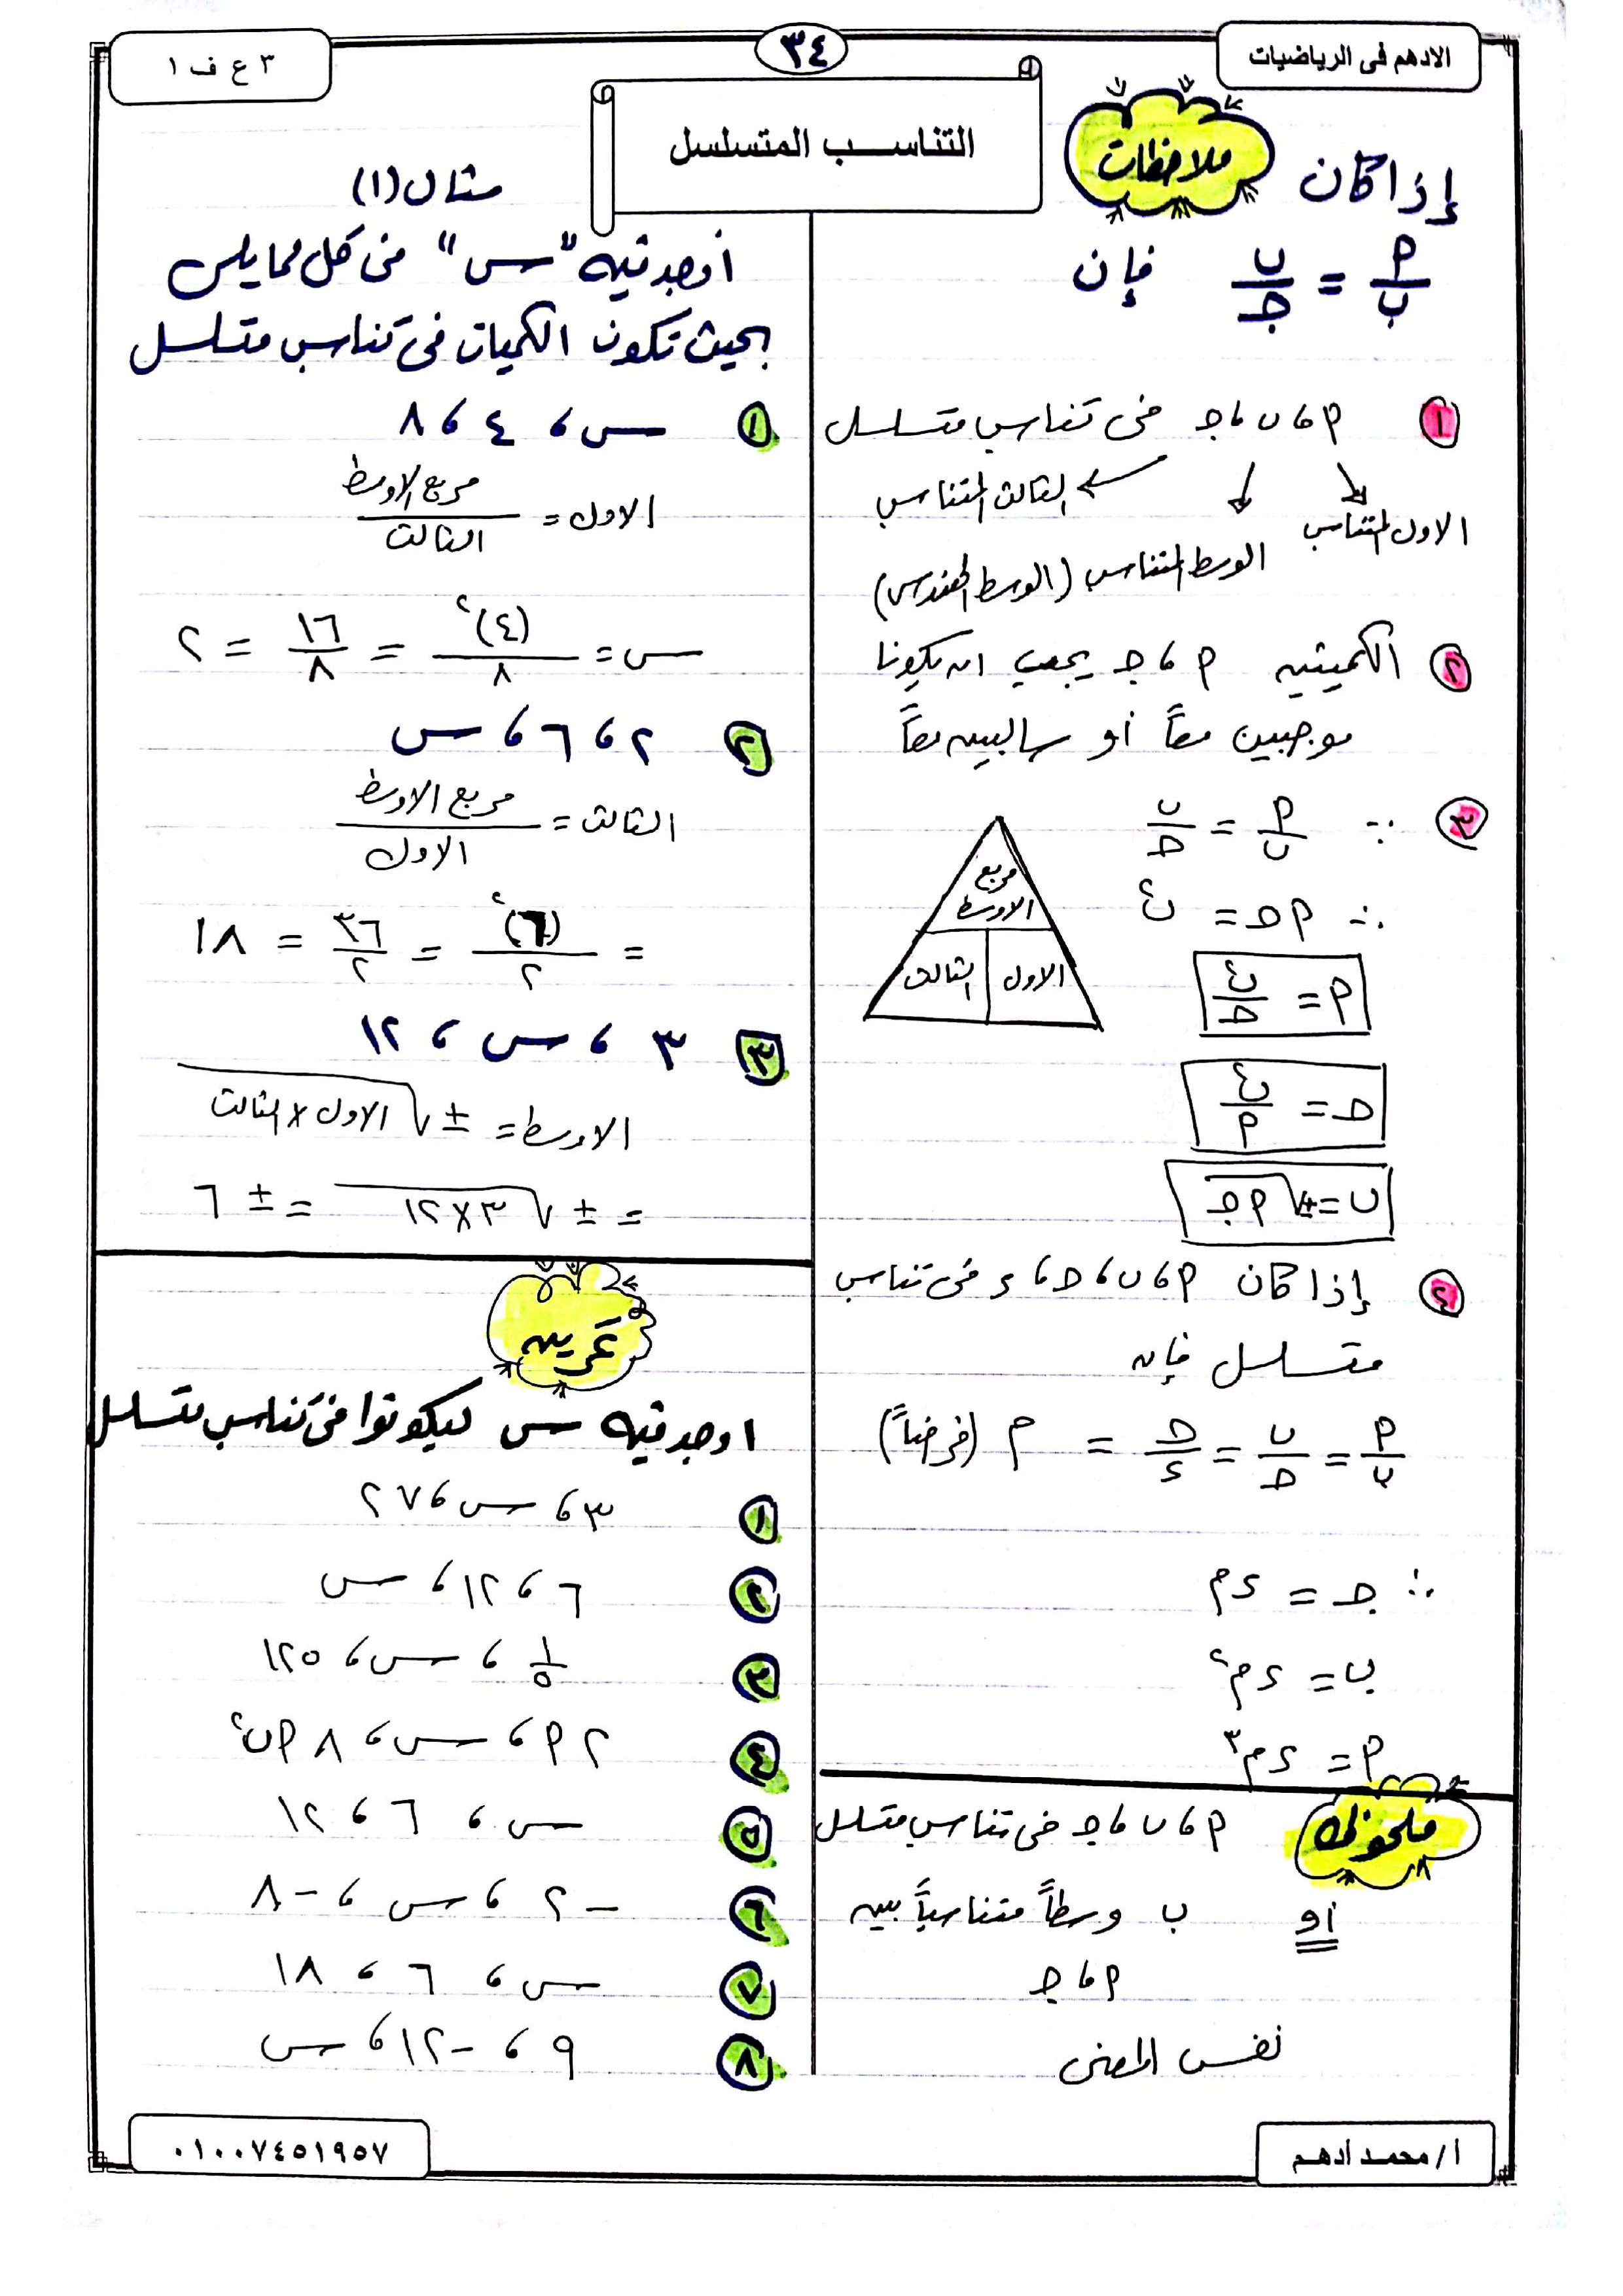 الادهم فى الرياضيات
٣٤
٣ ع ف ١
التناسب المتسلسل
ملاحظات
إذا كان
م/ب = ب/جـ فإن
١ م ، ب ، جـ فى تناسب متسلسل
الثالث المتناسب
الاول المتناسب
الوسط المتناسب (الوسط الهندسى)
٢ الكميتين م ، جـ يجب ان يكونا
موجبين معاً أو سالبين معاً
٣ ∵ م/ب = ب/جـ
∴ م جـ = ب٢
مربع الاوسط
الاول
الثالث
م = ب٢/جـ
جـ = ب٢/م
ب = ±√م جـ
٤ إذا كان م ، ب ، جـ ، ء فى تناسب
متسلسل فإن
م/ب = ب/جـ = جـ/ء = م (فرضاً)
∴ جـ = ء م
ب = ء م٢
م = ء م٣
ملحوظة
م ، ب ، جـ فى تناسب متسلسل
أو ب وسطاً متناسباً بين
م ، جـ
نفس المعنى
مثال (١)
أوجد قيمة "س" فى كل مما يلى
بحيث تكون الكميات فى تناسب متسلسل
١ س ، ٤ ، ٨
الاول = مربع الاوسط/الثالث
س = (٤)٢/٨ = ١٦/٨ = ٢
٢ ٢ ، ٦ ، س
الثالث = مربع الاوسط/الاول
= (٦)٢/٢ = ٣٦/٢ = ١٨
٣ ٣ ، س ، ١٢
الاوسط = ±√الاول × الثالث
= ±√٣×١٢ = ± ٦
تمرين
اوجد قيمة س ليكونوا فى تناسب متسلسل
١ ٣ ، س ، ٢٧
٢ ٦ ، ١٢ ، س
٣ ١/٥ ، س ، ١٢٥
٤ ٢ م ، س ، ٨ م ب٢
٥ س ، ٦ ، ١٢
٦ -٢ ، س ، -٨
٧ س ، ٦ ، ١٨
٨ ٩ ، -١٢ ، س
أ / محمد أدهم
٠١٠٠٧٤٥١٩٥٧